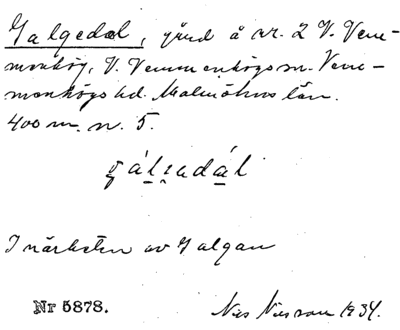 Galgedal, gärd å nr. 2 V. Vem-
menhög, V. Vemmenhögs sn. Vem-
menhögs hd. Malmöhus län.
400 m. n. 5.
gálᵹadál
I närheten av Galgan
Nr 5878. Nils Nilsson 1934.